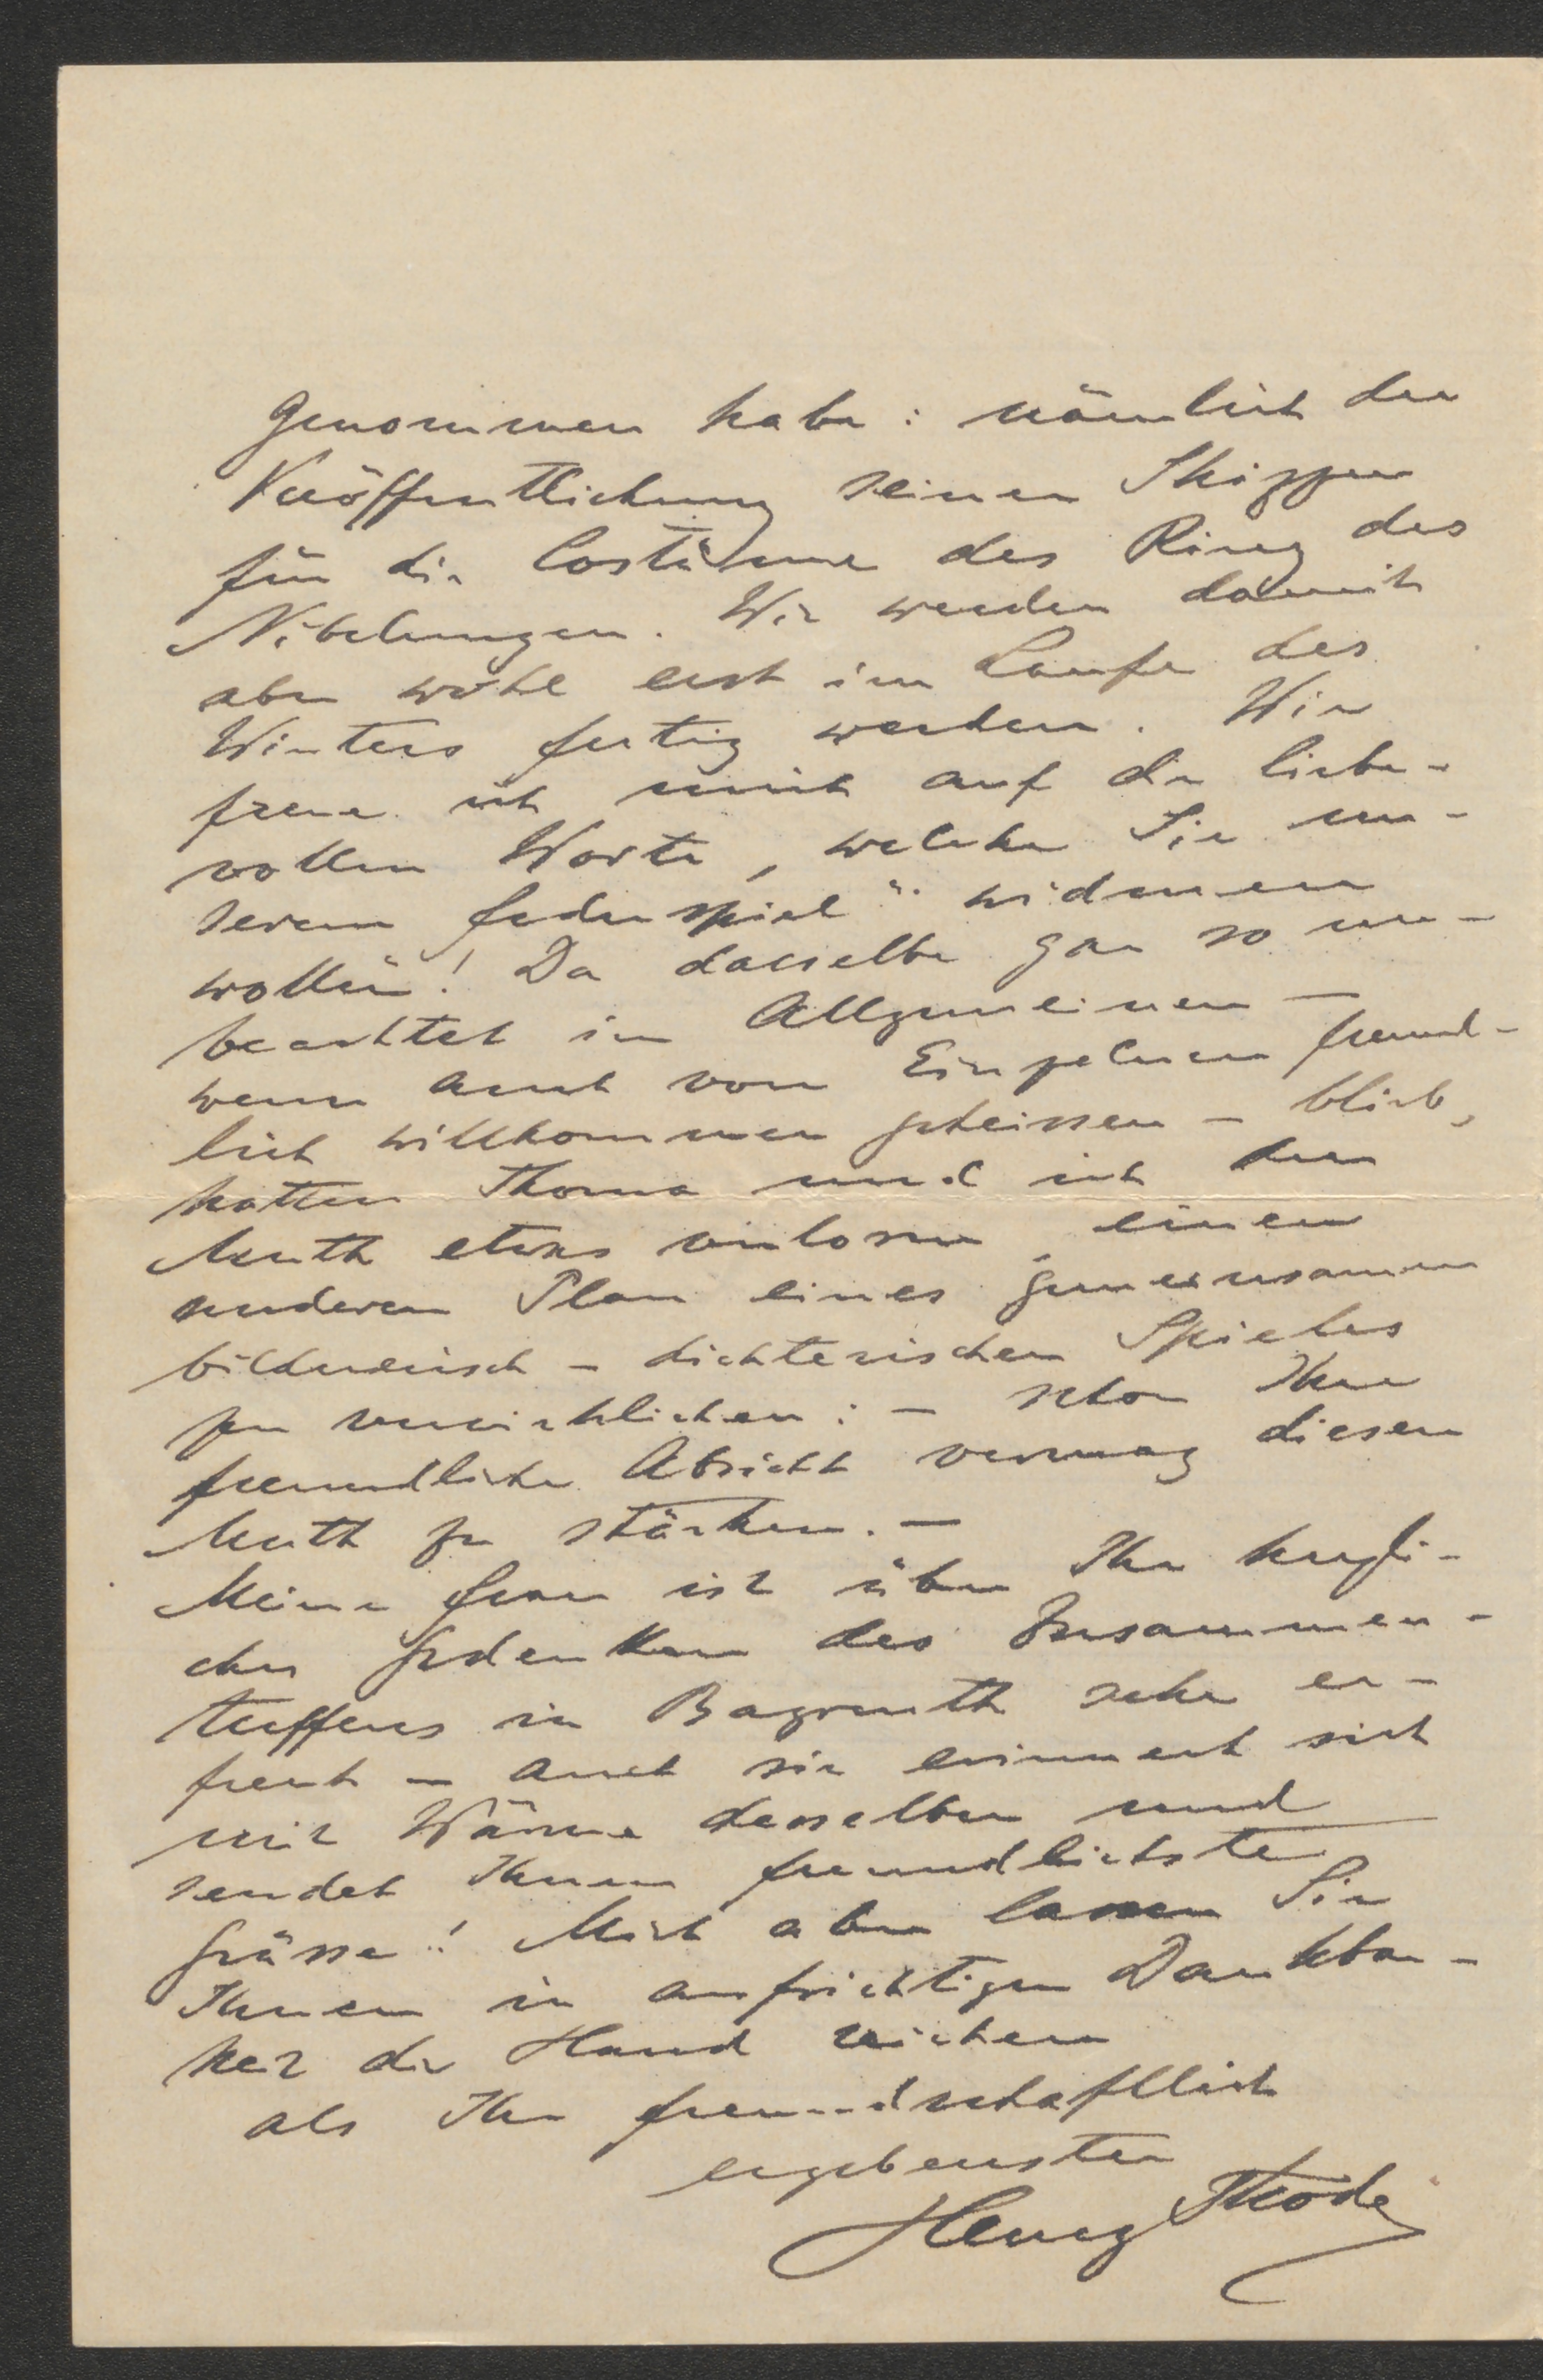 genommen habe: nämlich der
Veröffentlichung seiner Skizzen
für die Costüme des Ring des
Nibelungen. Wir werden damit
aber wohl erst im Laufe des
Winters fertig werden. Wie
freue ich mich auf die liebe-
vollen Worte, welche Sie un-
serem Federspiel" widmen
wollen! Da dasselbe gar so un-
beachtet im Allgemeinen —
wenn auch von Einzelnen freund-
lich willkommen geheissen - blieb,
hatten Thoma und ich den
Muth etwas verloren, einen
anderen Plan eines gemeinsamen
bildnerisch - dichterischen Spieles
zu verwirklichen: - schon Ihre
freundliche Absicht vermag diesen
Muth zu stärken. —
Meine Frau ist über Ihr herzli-
ches Gedenken des Zusammen-
treffens in Bayreuth sehr er-
freut - auch sie erinnert sich
mit Wärme desselben und
sendet Ihnen freundlichste
Grüsse! Mich aber lassen Sie
Ihnen in aufrichtiger Dankbar-
keit die Hand reichen
als Ihr freundschaftlich
ergebenster
Henry Thode